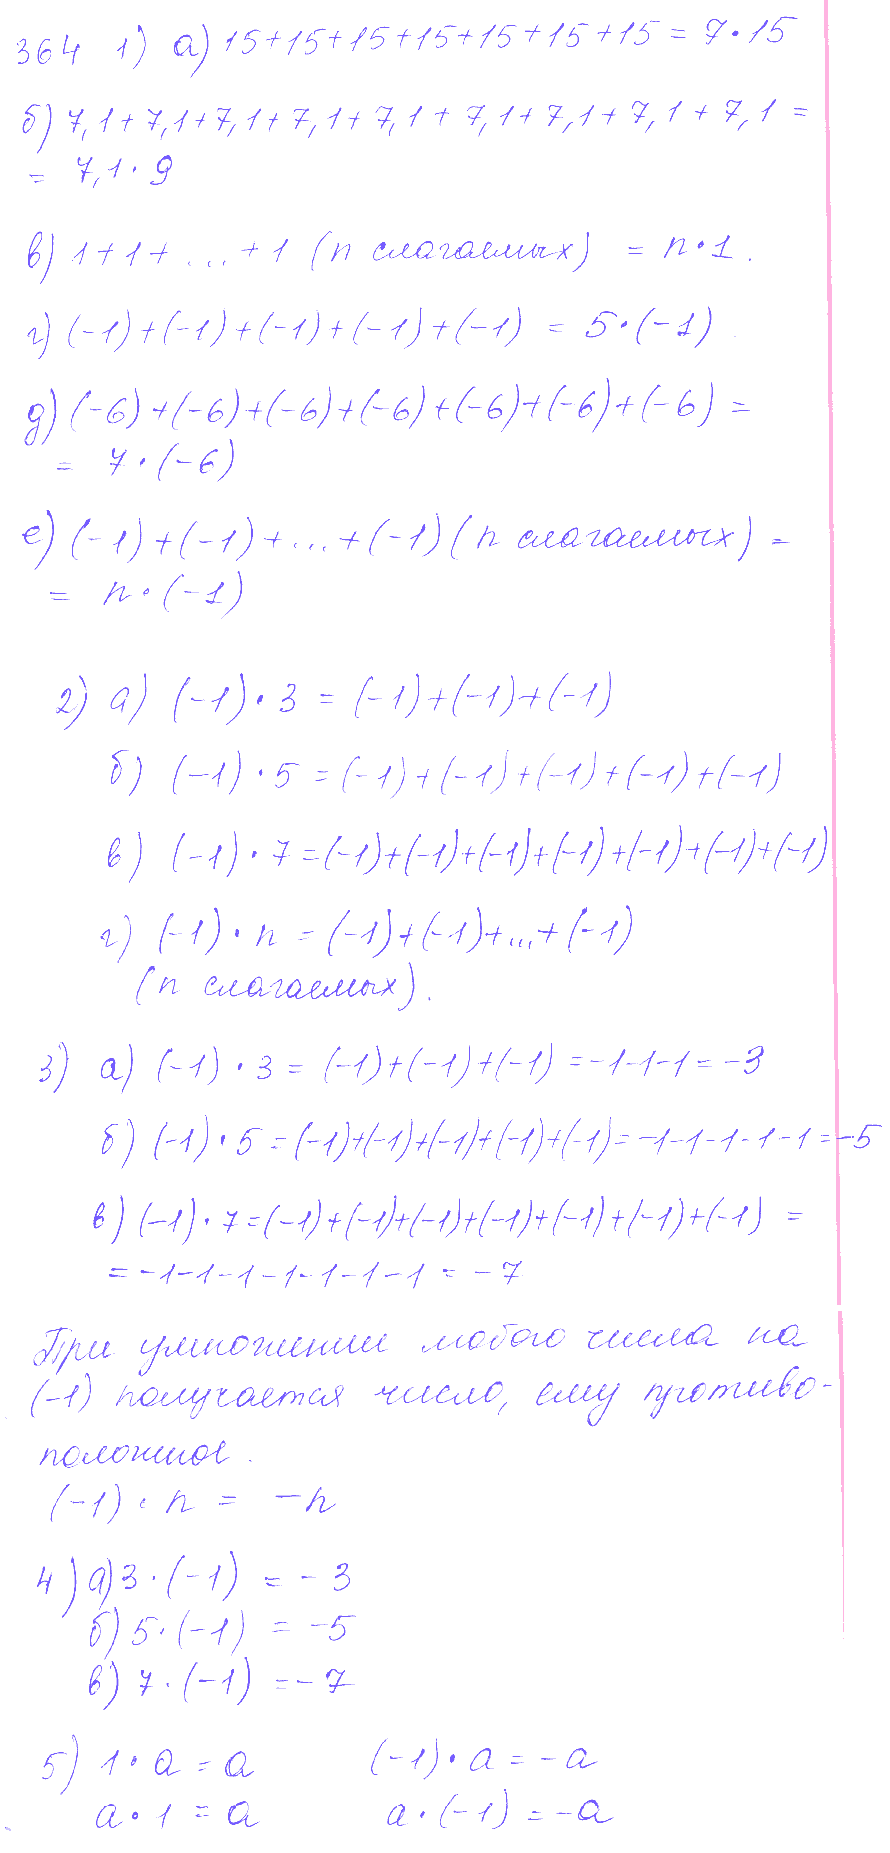 364 1) а) 15+15+15+15+15+15+15 = 7·15
б) 7,1+7,1+7,1+7,1+7,1+7,1+7,1+7,1+7,1 =
= 7,1·9
в) 1+1+...+1 (n слагаемых) = n·1.
г) (-1)+(-1)+(-1)+(-1)+(-1) = 5·(-1)
д) (-6)+(-6)+(-6)+(-6)+(-6)+(-6)+(-6) =
= 7·(-6)
е) (-1)+(-1)+...+(-1) (n слагаемых) =
= n·(-1)
2) а) (-1)·3 = (-1)+(-1)+(-1)
б) (-1)·5 = (-1)+(-1)+(-1)+(-1)+(-1)
в) (-1)·7 = (-1)+(-1)+(-1)+(-1)+(-1)+(-1)+(-1)
г) (-1)·n = (-1)+(-1)+...+(-1)
(n слагаемых).
3) а) (-1)·3 = (-1)+(-1)+(-1) = -1-1-1 = -3
б) (-1)·5 = (-1)+(-1)+(-1)+(-1)+(-1) = -1-1-1-1-1 = -5
в) (-1)·7 = (-1)+(-1)+(-1)+(-1)+(-1)+(-1)+(-1) =
= -1-1-1-1-1-1-1 = -7
При умножении любого числа на
(-1) получается число, ему противо-
положное.
(-1)·n = -n
4) а) 3·(-1) = -3
б) 5·(-1) = -5
в) 7·(-1) = -7
5) 1·a = a (-1)·a = -a
a·1 = a a·(-1) = -a